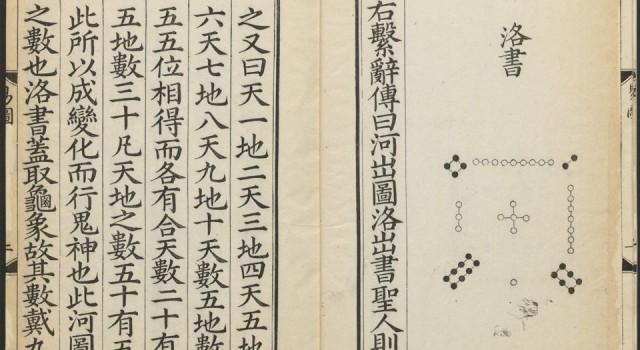 洛書
右繫辭傳曰河出圖洛出書聖人則
之又曰天一地二天三地四天五地
六天七地八天九地十天數五地數
五五位相得而各有合天數二十有
五地數三十凡天地之數五十有五
此所以成變化而行鬼神也此河圖
之數也洛書蓋取龜象故其數戴九